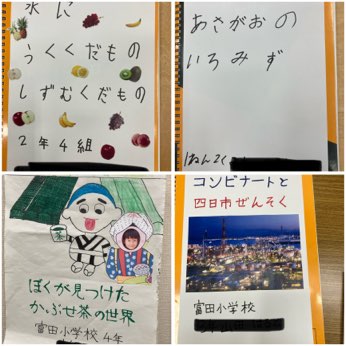 水に
うくくだもの
しずむくだもの
2年4組
あさがおの
いろみず
1ねん2く
茶
ぼくが見つけた
かぶせ茶の世界
富田小学校 4年
コンビナートと
四日市ぜんそく
富田小学校